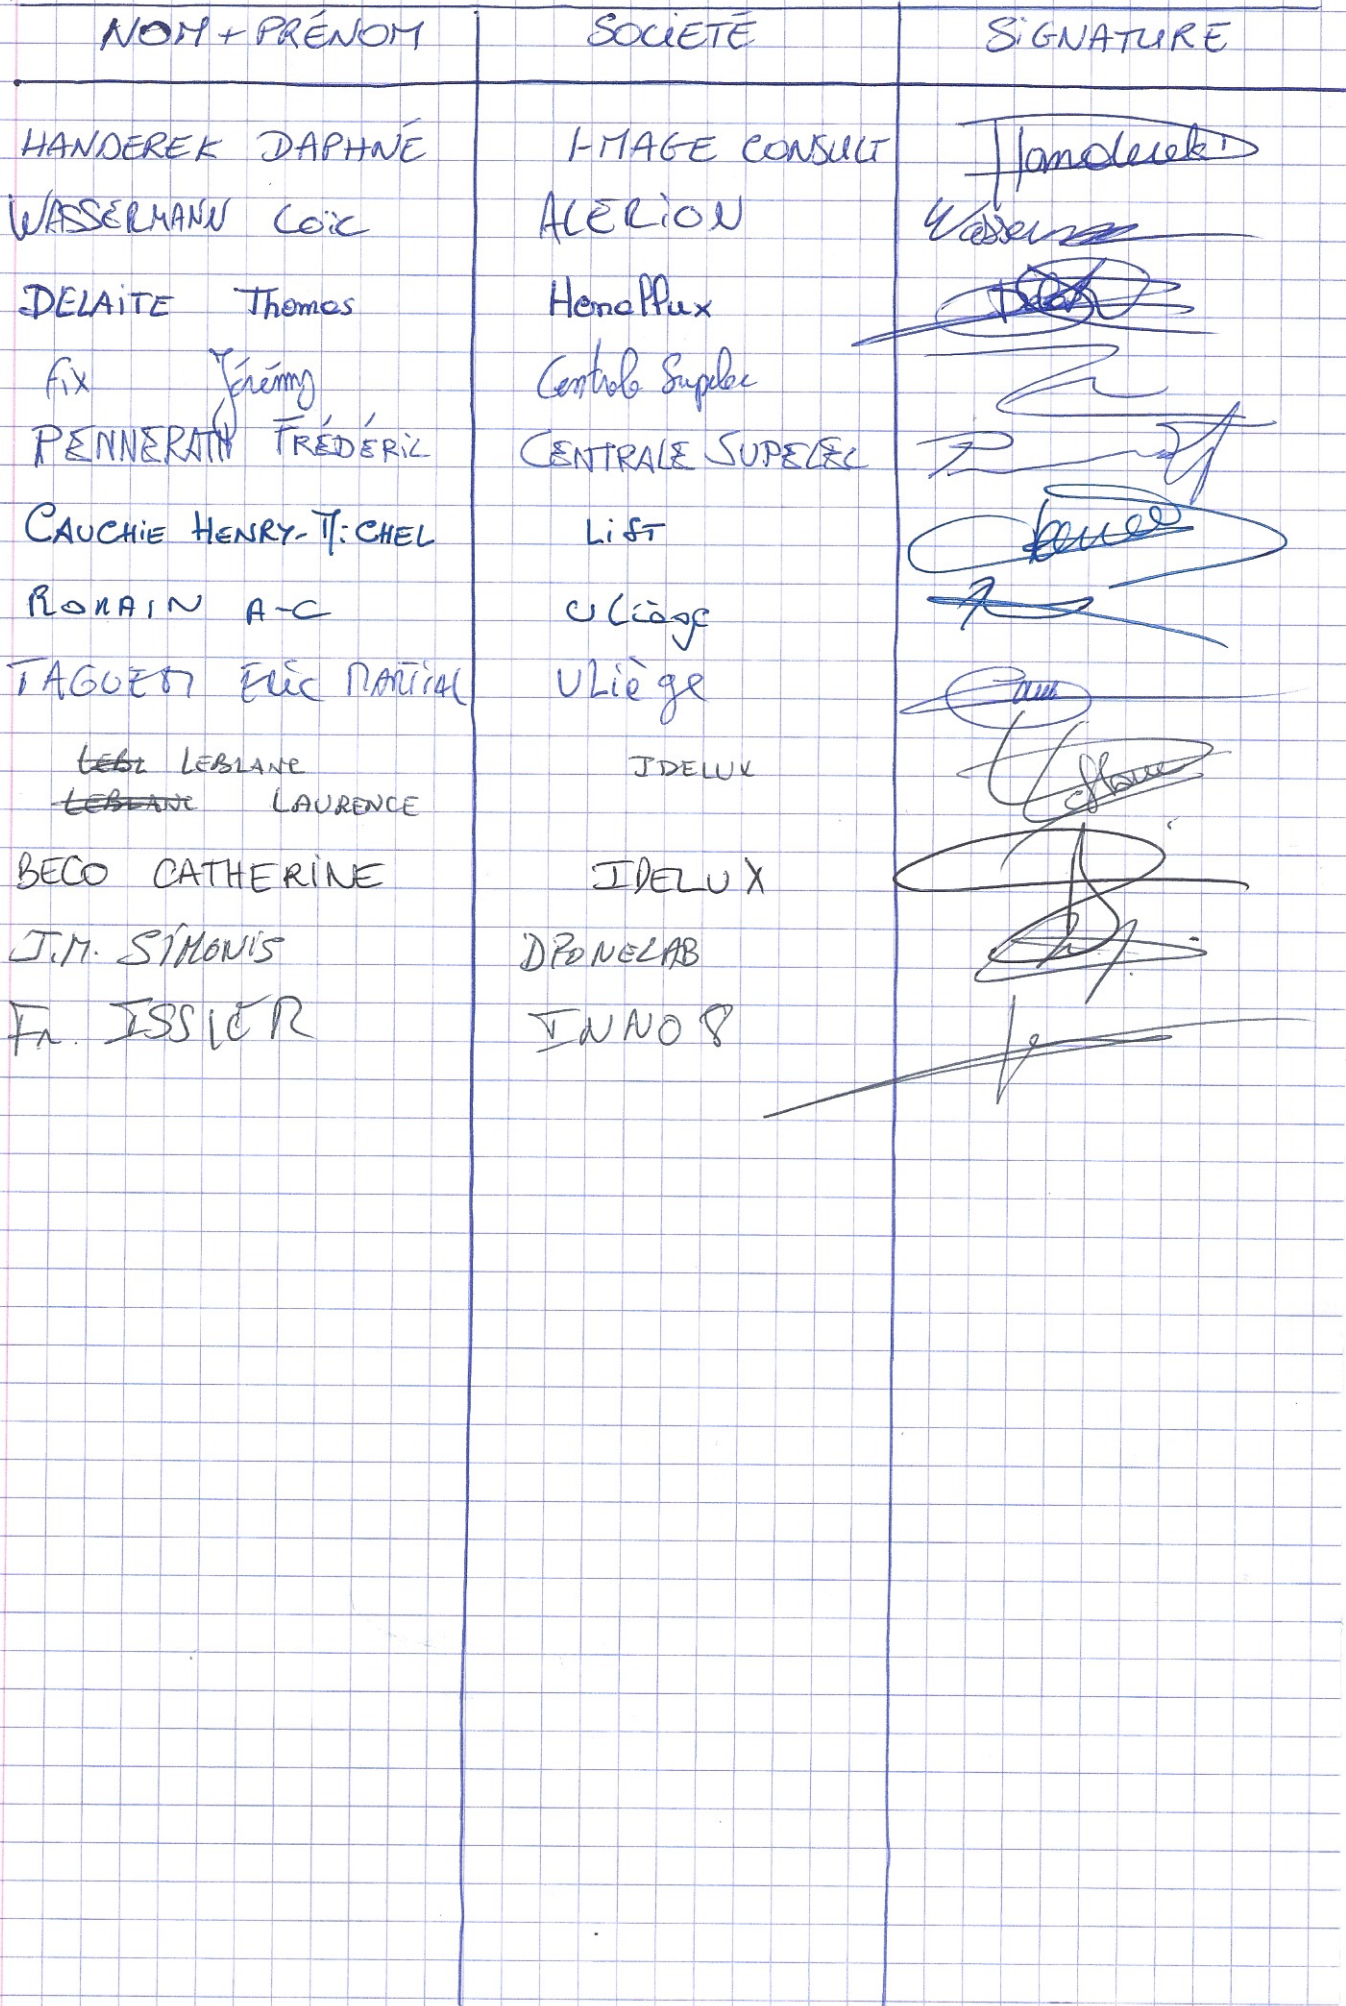 NOM + PRÉNOM SOCIÉTÉ SiGNATURE
HANDEREK DAPHNÉ I-MAGE CONSULT Handerek D
WASSERMANN Loïc ALERiON
DELAITE Thomas Hemoflux
fix Jérémy Centrale Supelec
PENNERATH FRÉDÉRiC CENTRALE SUPELEC
CAUCHiE HENRY-MiCHEL LiST
ROMAIN A-C ULiège
TAGUEM ERic MARTiAL ULiège
LEBL LEBLANC IDELUX
LEBLANC LAURENCE
BECO CATHERiNE IDELUX
J.M. SiMONiS DRONELAB
Fr. ISSLER INNO8